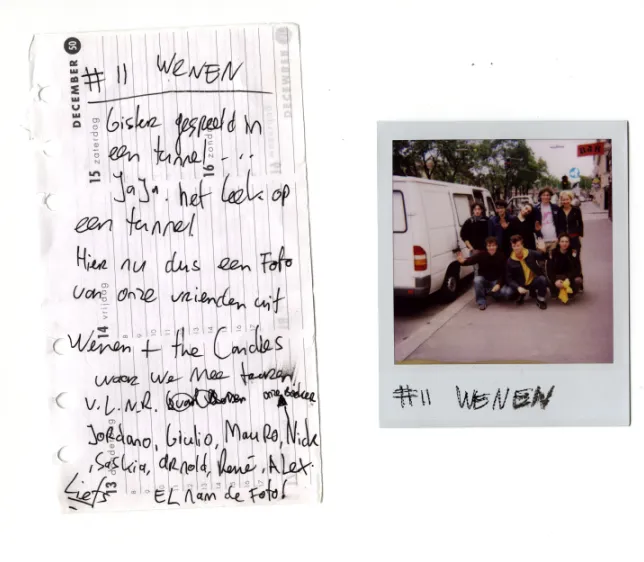 DECEMBER 50
15 zaterdag
16
14 vrijdag
13
# 11 WENEN
Gister gespeeld in
een tunnel - ...
JaJa, het leek op
een tunnel
Hier nu dus een Foto
van onze vrienden uit
Wenen + the Candles
waar we mee touren
V.L.N.R. onze
Jordano, Giulio, Mauro, Nick
, Saskia, arnold, René, Alex.
Liefs EL nam de Foto!
#11 WENEN